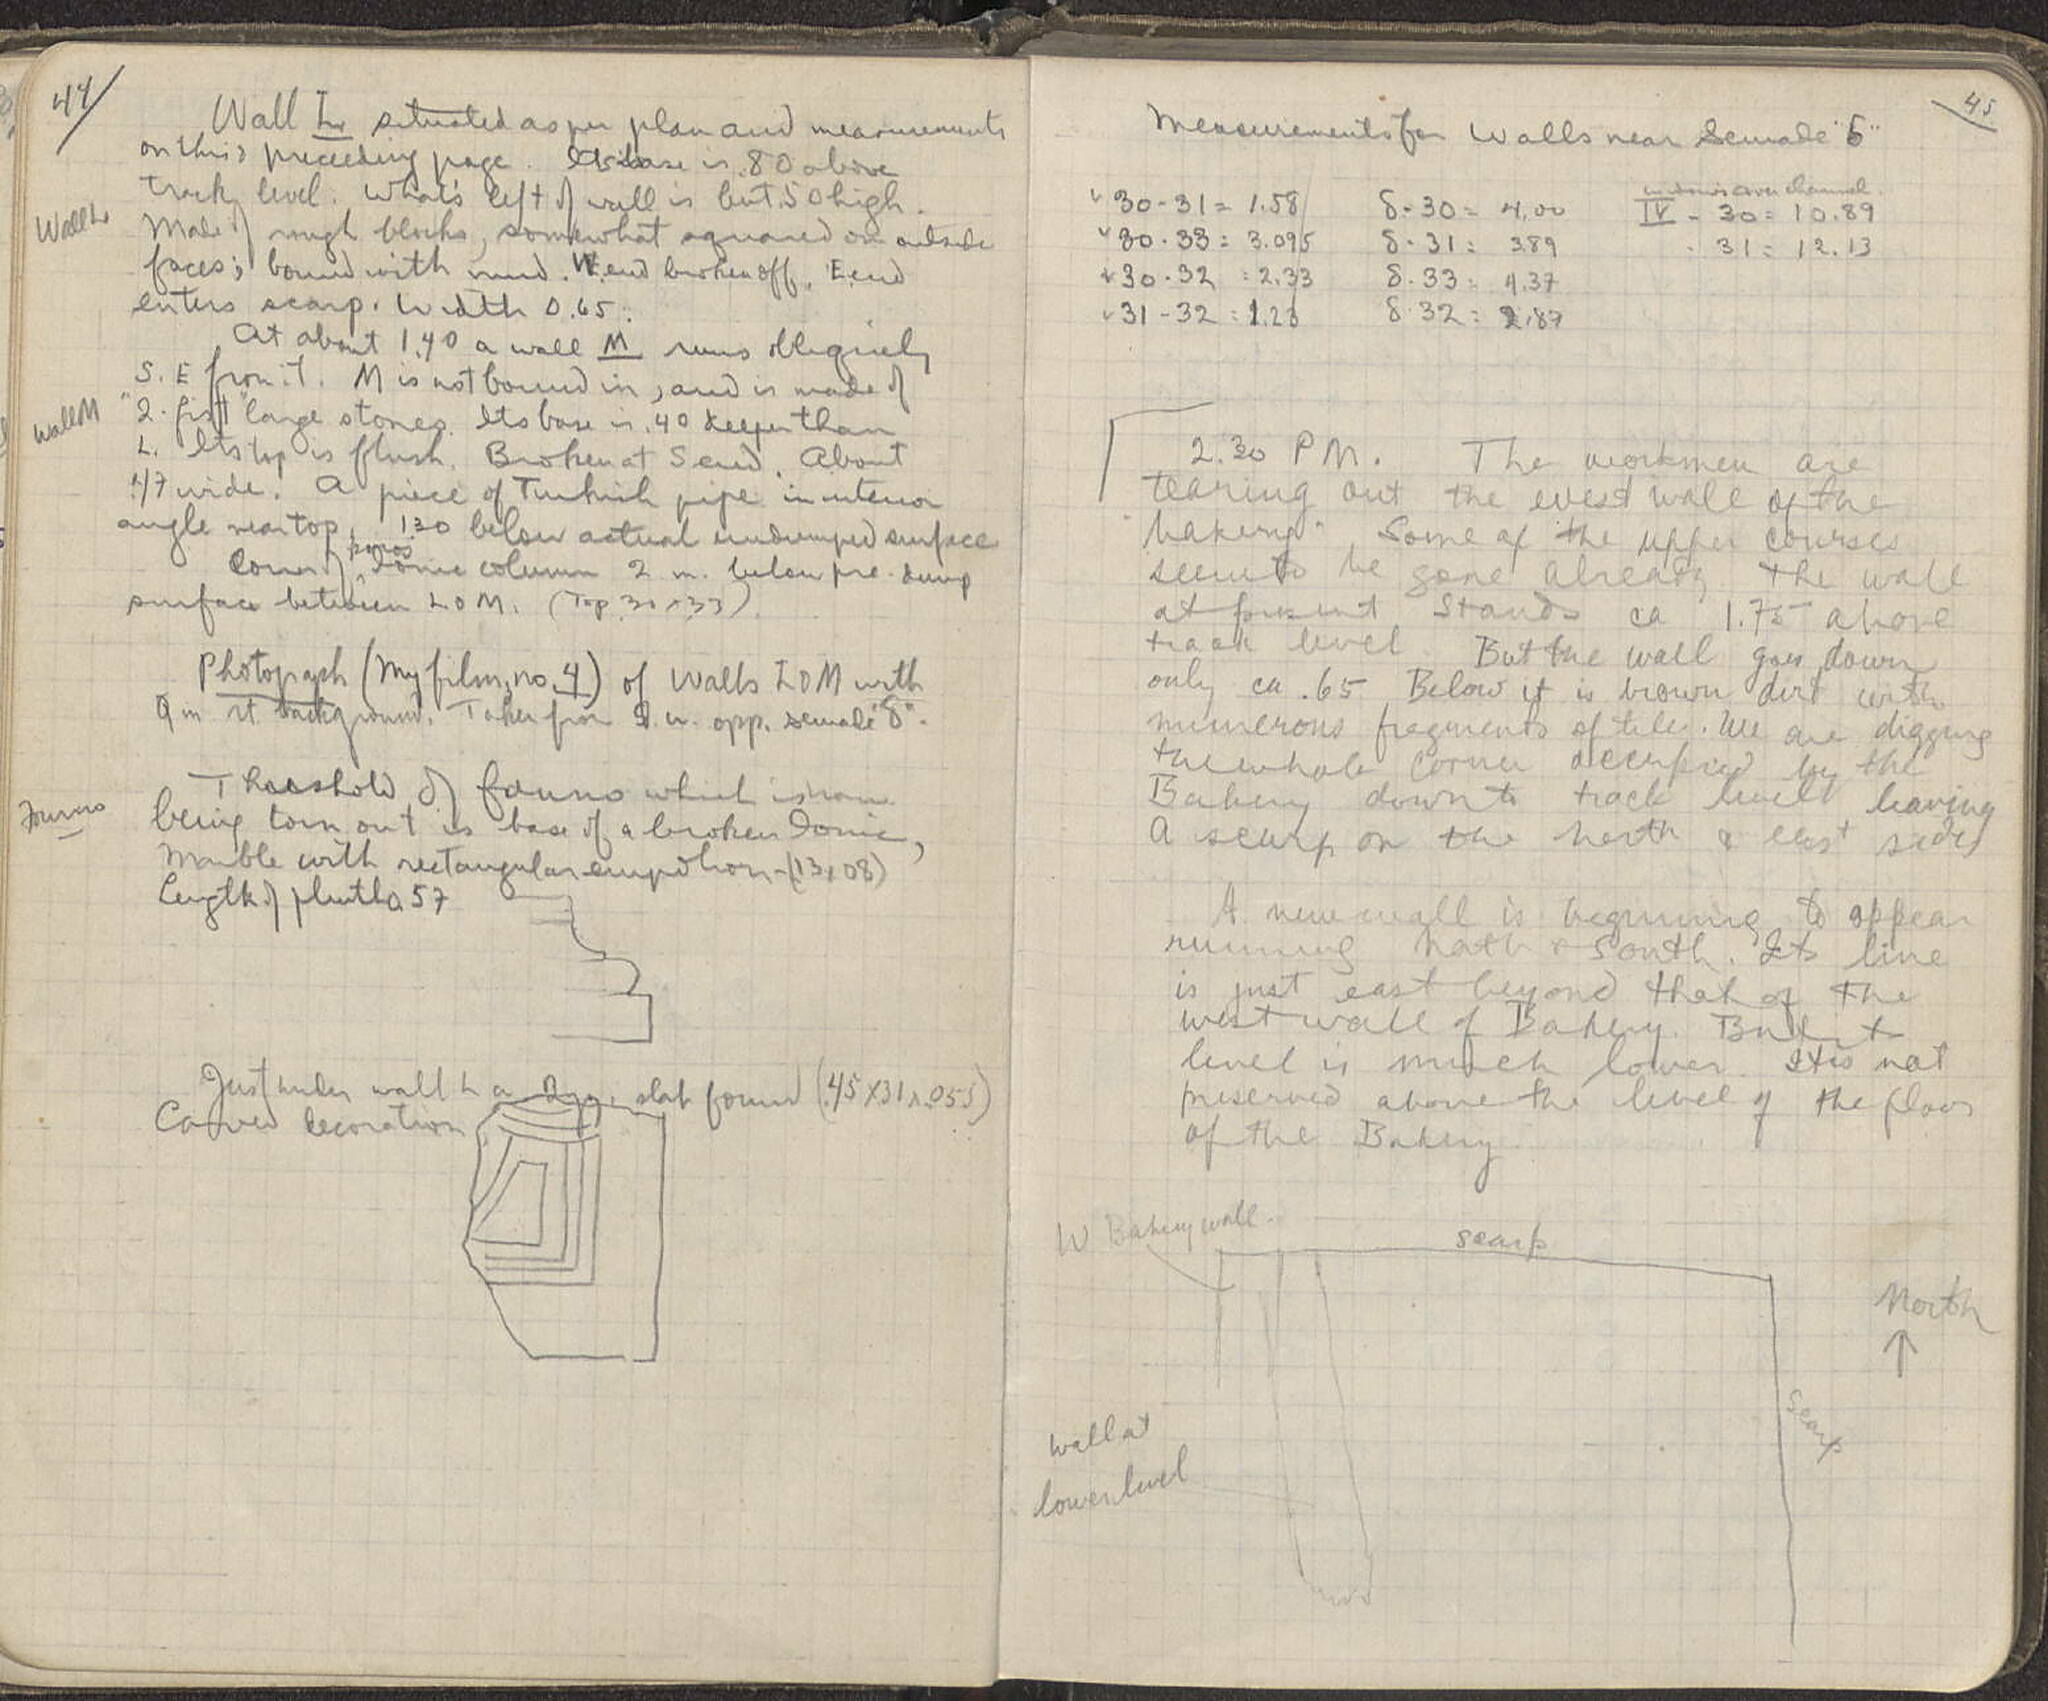 44
Wall L situated as per plan and measurements
on this preceding page. Its base is .80 above
track level. What's left of wall is but .50 high.
Wall L
Made of rough blocks, somewhat squared on outside
faces; bound with mud. W. end broken off. E end
enters scarp. Width 0.65.
At about 1.40 a wall M runs obliquely
S.E from it. M is not bound in, and is made of
Wall M
"2-fist" large stones. Its base is .40 deeper than
L. Its top is flush. Broken at S end. About
.47 wide. A piece of Turkish pipe in interior
angle near top, 1.30 below actual undumped surface
poros
Corner of Ionic column 2 m. below pre-dump
surface between L & M. (Top 30 x 33).
Photograph (My film, no. 4) of Walls L & M with
9 m st background. Taken from opp. semade "δ".
Threshold of fourno which is now
Fourno
being torn out is base of a broken Ionic,
Marble with rectangular (13 x 08)
Length of plinth 0.57
Just under wall L a Byz. slab found (.45 x 31 x .055)
Carved decoration
45
Measurements for Walls near Semade "δ"
30-31 = 1.58 δ-30 = 4.00 IV - 30 = 10.89
30-33 = 3.095 δ-31 = 3.89 - 31 = 12.13
30-32 = 2.33 δ-33 = 4.37
31-32 = 1.23 δ-32 = 2.87
2.30 PM. The workmen are
tearing out the west wall of the
"bakery" Some of the upper courses
seem to be gone already The wall
at present stands ca 1.75 above
track level. But the wall goes down
only ca .65 Below it is brown dirt with
numerous fragments of tile. We are digging
the whole corner occupied by the
Bakery down to track level leaving
a scarp on the north & east sides
A new wall is beginning to appear
running north & south. Its line
is just east beyond that of the
west wall of Bakery. But its
level is much lower. It is not
preserved above the level of the floor
of the Bakery
W Bakery wall.
scarp
North
scarp
wall at
lower level